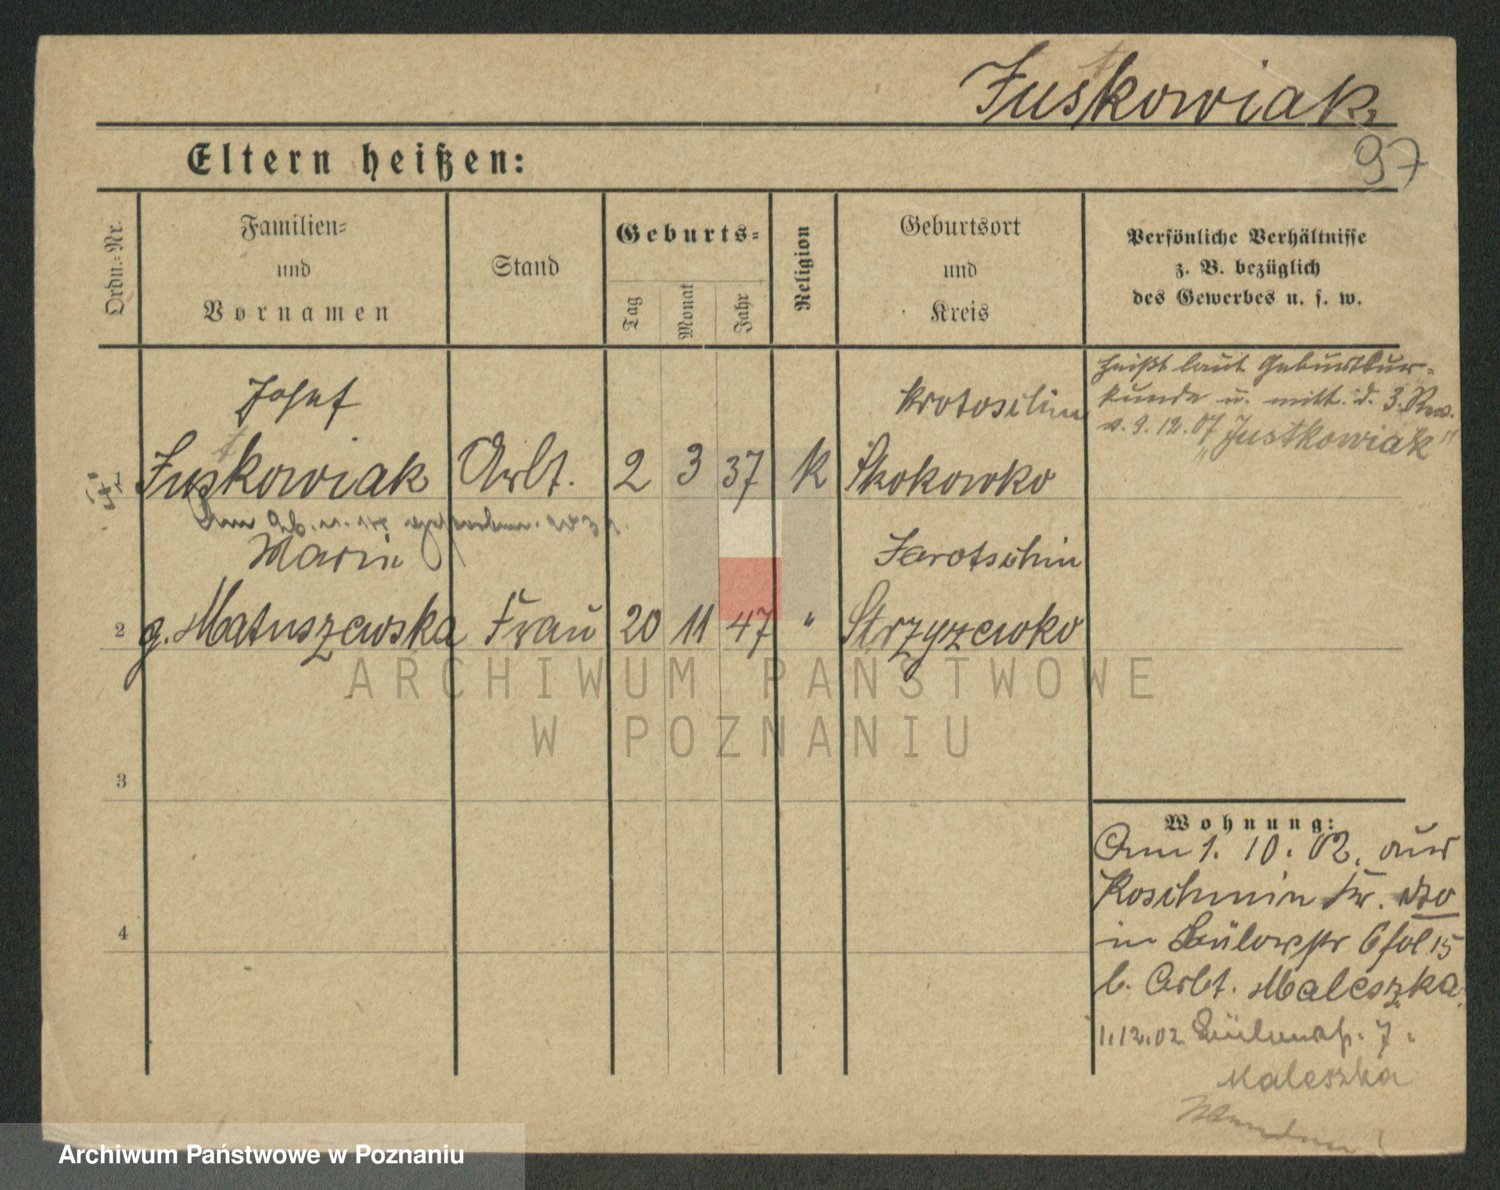 Juskowiak
97
Eltern heißen:
Ordn.-Nr.
Familien-
und
Vornamen
Stand
Geburts-
Tag
Monat
Jahr
Religion
Geburtsort
und
Kreis
Persönliche Verhältnisse
z. B. bezüglich
des Gewerbes u. s. w.
Josef
Juskowiak
Arbt.
2
3
37
k
Krotoschin
Skokowko
heißt laut Geburtsur-
kunde u. mitt. d. 3. Rev.
v. 9.12.07 "Justkowiak"
Marie
2
g. Matuszewska
Frau
20
11
47
"
Jarotschin
Strzyzewko
3
4
Wohnung:
Am 1. 10. 02. aus
Koschmin
in Bülowstr 6 15
b. Arbt. Maleszka
1.12.02 Bülowstr. 7.
Maleszka
ARCHIWUM PAŃSTWOWE
W POZNANIU
Archiwum Państwowe w Poznaniu